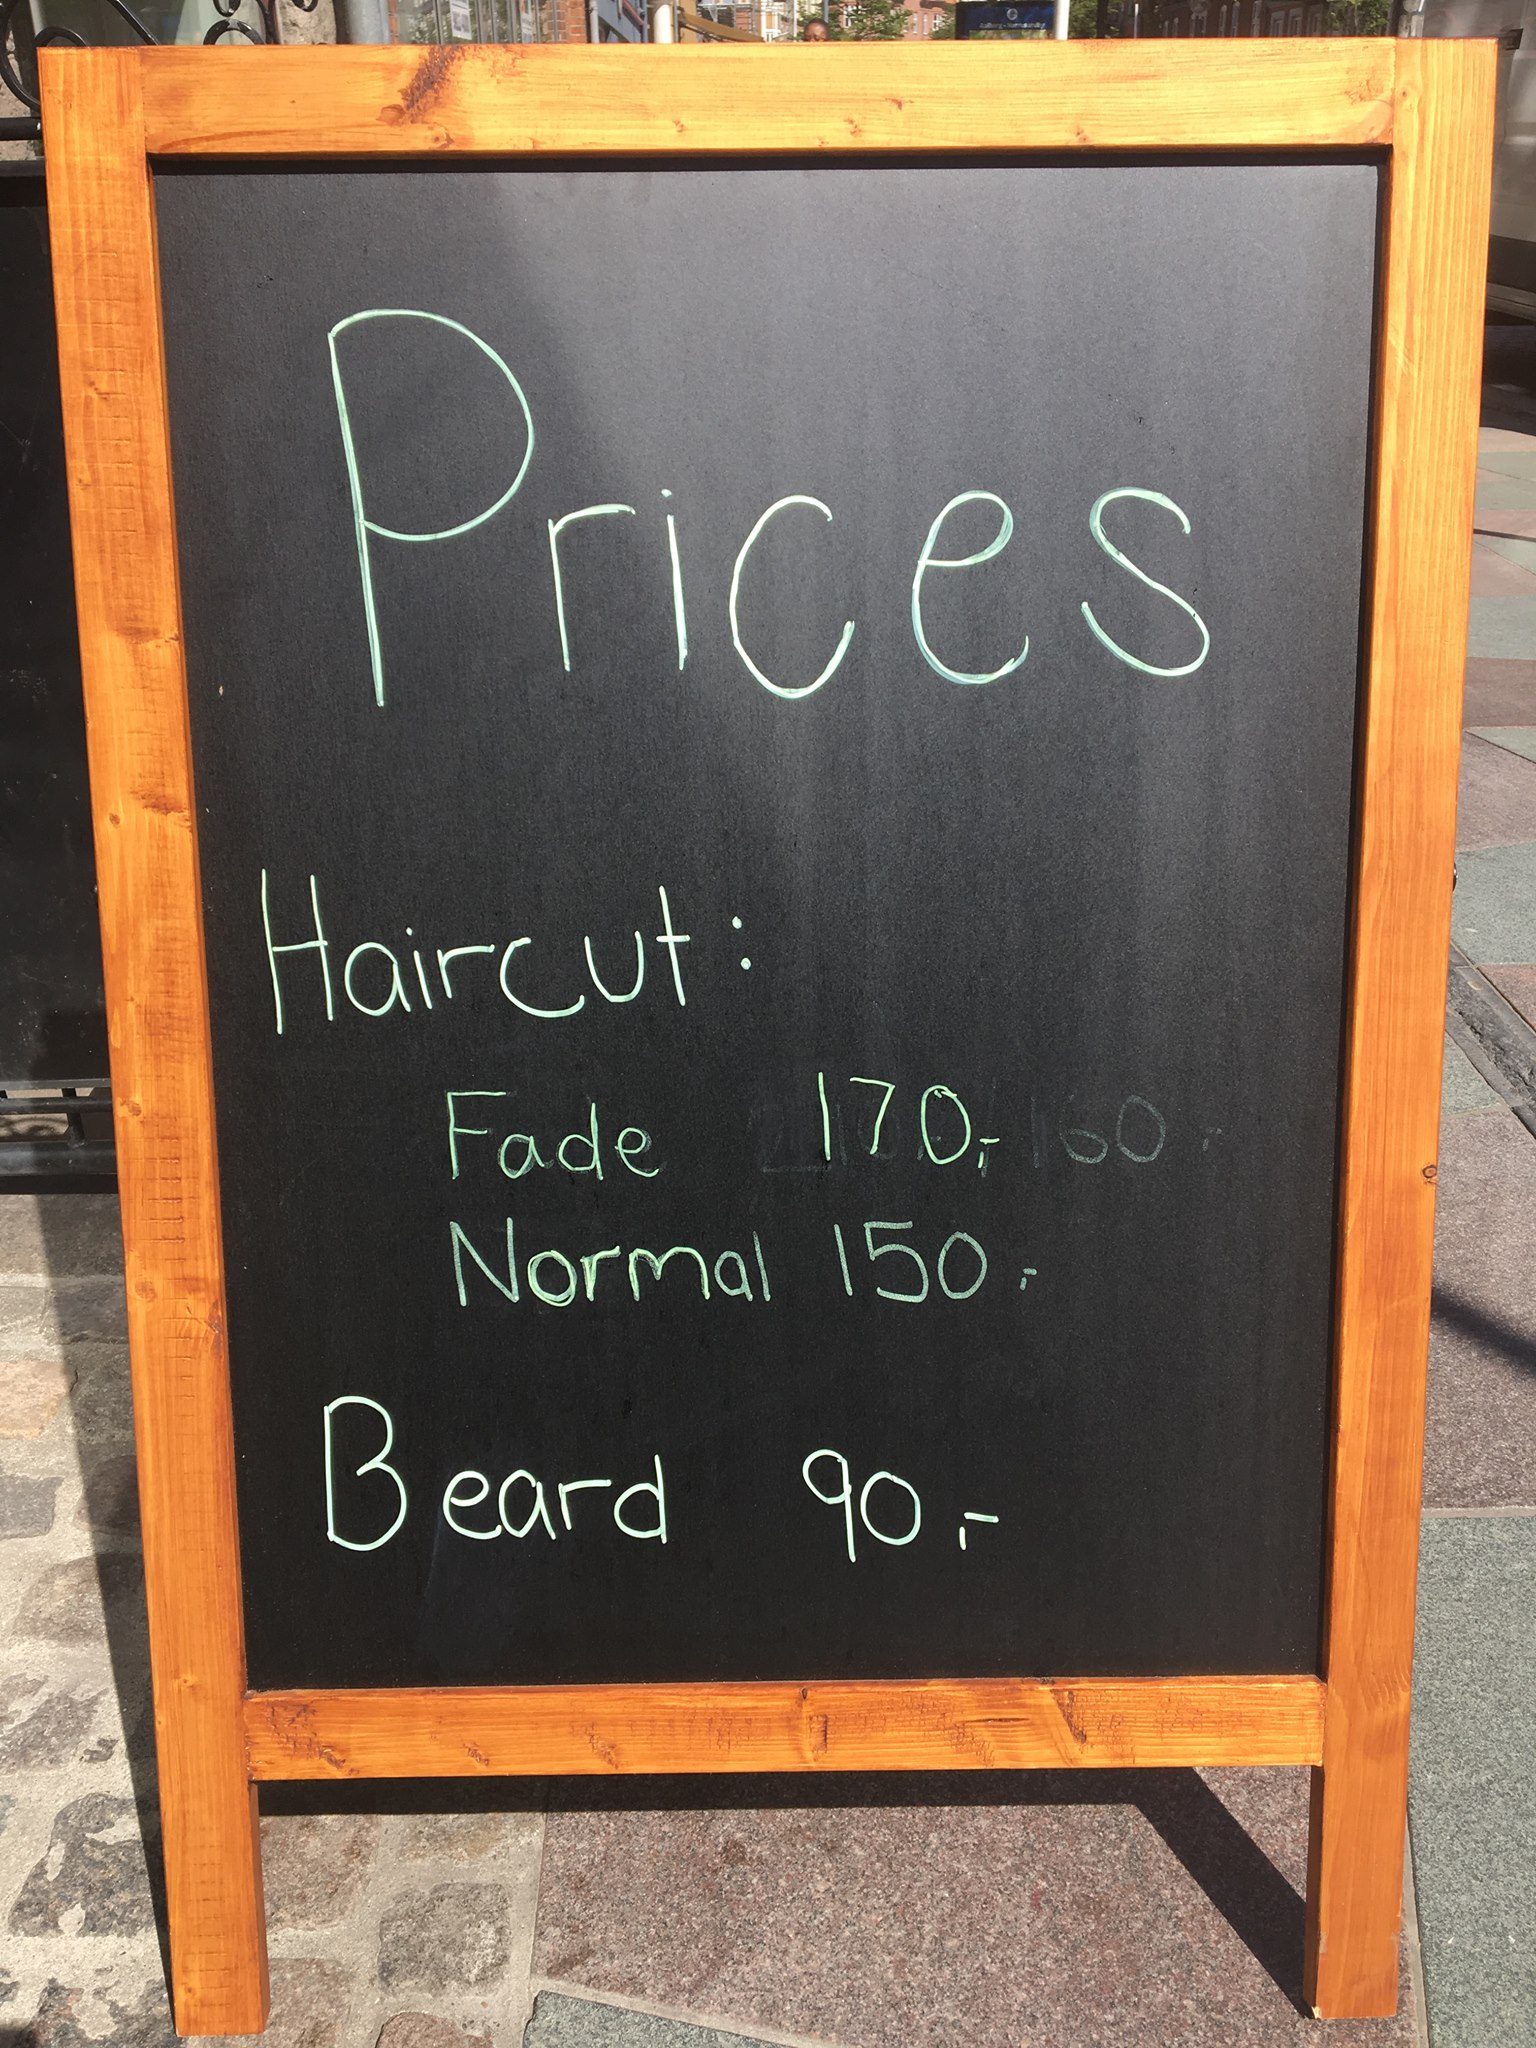 Prices
Haircut:
Fade 170,- 160,-
Normal 150,-
Beard 90,-